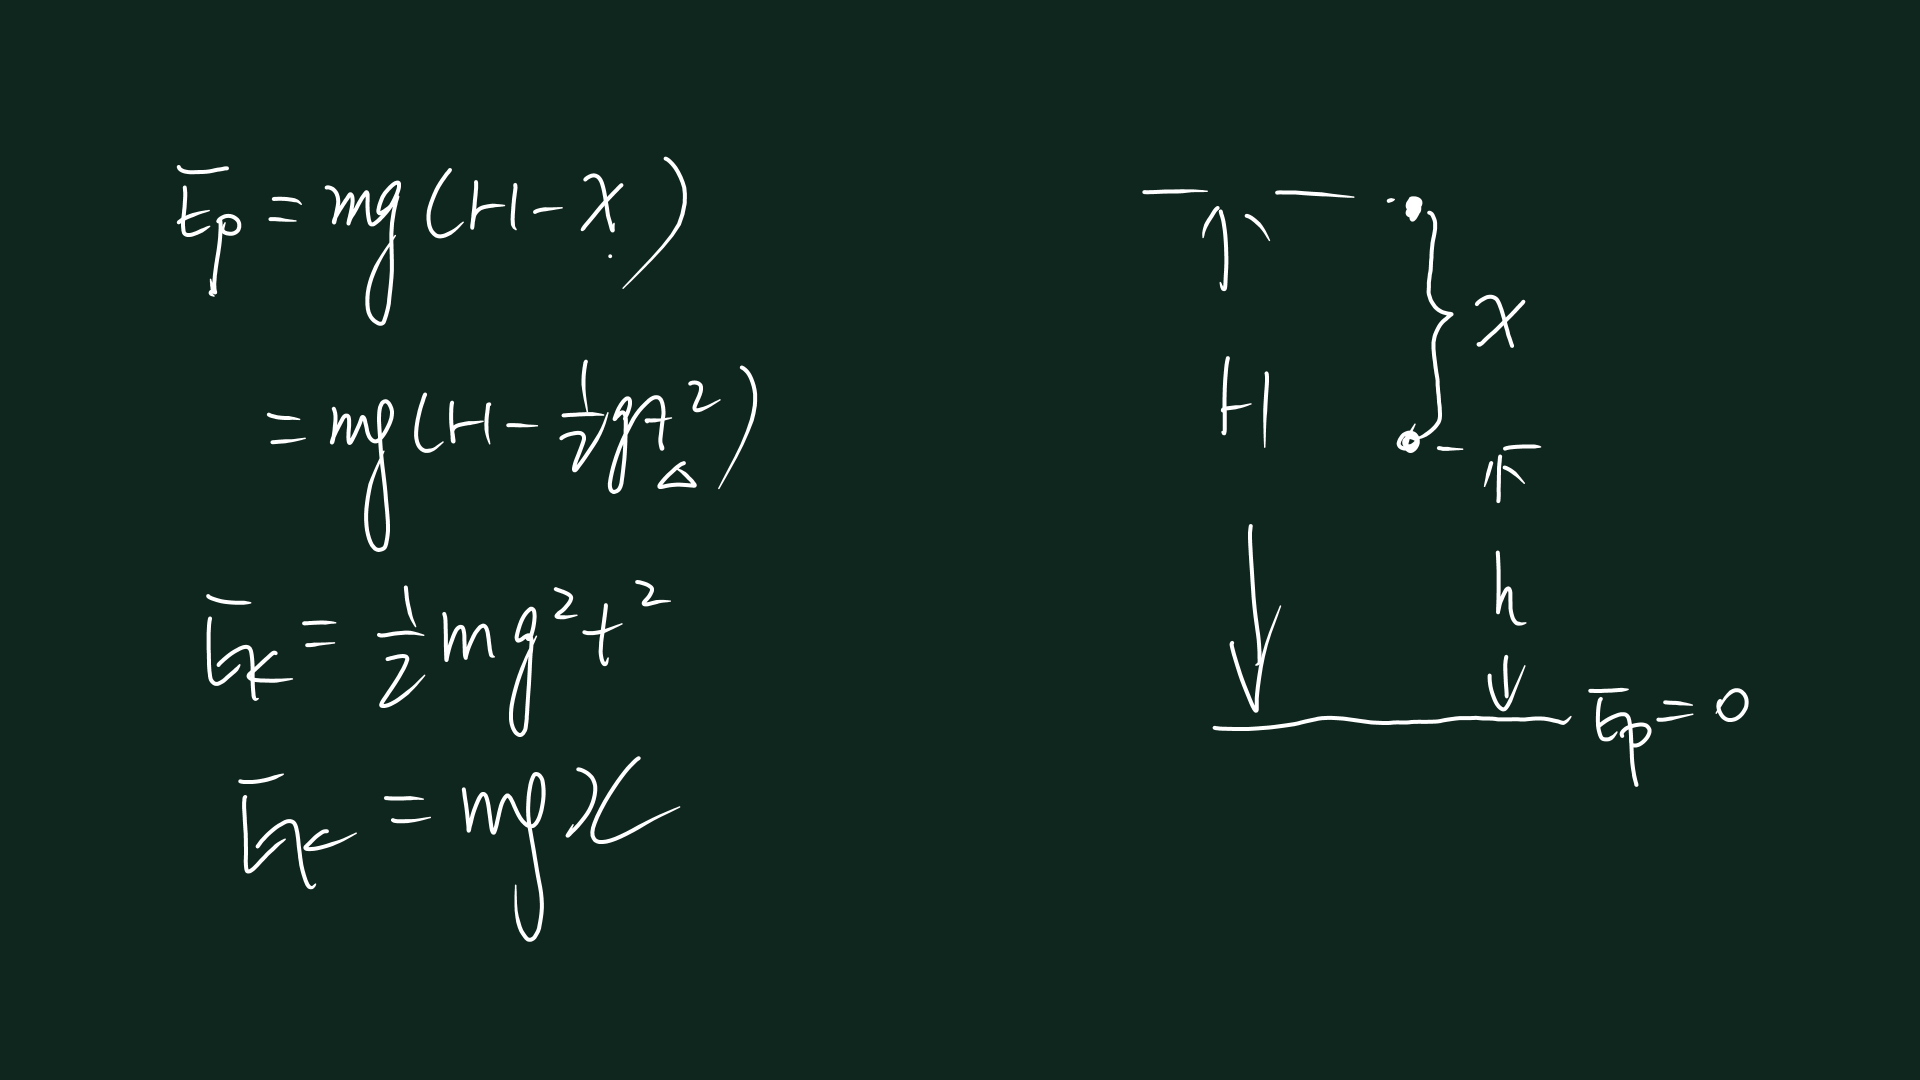 Ep = mg(H-x)
= mg(H-½gt²)
Ek = ½mg²t²
Ek = mgx
x
H
h
Ep = 0